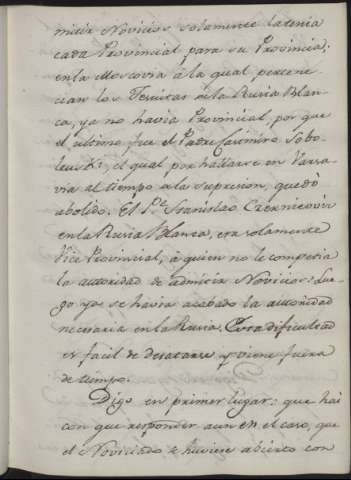 mitir Novicios solamente la tenia
cada Provincial para su Provincia:
en la Moscovia à la qual pertene-
cian los Jesuitas de la Rusia Blan-
ca, ya no havia Provincial, por que
el ultimo fue el Padre Casimiro Sobo-
leuski, el qual por hallarse en Varso-
via al tiempo de la supresion, quedò
abolido. El P.e Stanislao Czerniewicz
en la Rusia Blanca, era solamente
Vice Provincial, à quien no le competia
la autoridad de admitir Novicios: Lue-
go ya se havia acabado la autoridad
necesaria en la Rusia. Esta dificultad
es facil de desatarse, y viene fuera
de tiempo.
Digo en primer lugar: que hai
con que responder aun en el caso, que
el Noviciado se huviese abierto con